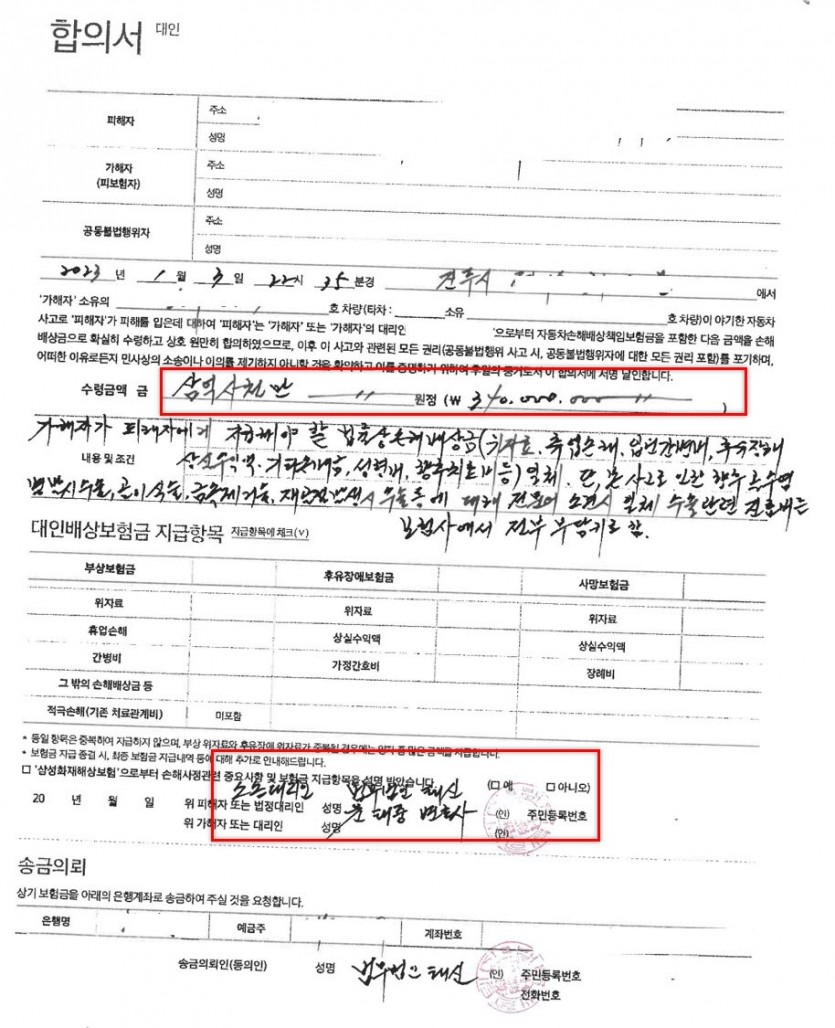 합의서 대인
피해자 주소
성명
가해자 (피보험자) 주소
성명
공동불법행위자 주소
성명
2023 년 1 월 3 일 22시 35 분경 전주시 에서
'가해자' 소유의 호 차량(타차 : 소유 호 차량)이 야기한 자동차
사고로 '피해자'가 피해를 입은데 대하여 '피해자'는 '가해자' 또는 '가해자'의 대리인 '으로부터 자동차손해배상책임보험금을 포함한 다음 금액을 손해
배상금으로 확실히 수령하고 상호 원만히 합의하였으므로, 이후 이 사고와 관련된 모든 권리(공동불법행위 사고 시, 공동불법행위자에 대한 모든 권리 포함)를 포기하며,
어떠한 이유로든지 민사상의 소송이나 이의를 제기하지 아니할 것을 확약하고 이를 증명하기 위하여 후일의 증거로서 이 합의서에 서명 날인합니다.
수령금액 금 삼억사천만 〃 원정 (₩ 340.000.000 〃 )
가해자가 피해자에게 지급해야 할 법률상손해배상금(위자료, 휴업손해, 입원간병비, 후유장해
내용 및 조건 상실수익액, 기타손배금, 성형비, 향후치료비등) 일체. 단, 본 사고로 인한 향후
수술, 골이식술, 금속제거술, 재 시 수술등에 대해 전문의 소견시 일체 수술관련 진료비는
보험사에서 전부 부담키로 함.
대인배상보험금 지급항목 지급항목에 체크(∨)
부상보험금 후유장애보험금 사망보험금
위자료 위자료 위자료
휴업손해 상실수익액 상실수익액
간병비 가정간호비 장례비
그 밖의 손해배상금 등
적극손해(기존 치료관계비) 미포함
* 동일 항목은 중복하여 지급하지 않으며, 부상 위자료와 후유장애 위자료가 중복될 경우에는 양자 중 많은 금액을 지급합니다.
* 보험금 지급 종결 시, 최종 보험금 지급내역 등에 대해 추가로 안내해드립니다.
□ '삼성화재해상보험'으로부터 손해사정관련 중요사항 및 보험금 지급항목을 설명 받았습니다. (□ 예 □ 아니오)
소송대리인 법무법인 태신
20 년 월 일 위 피해자 또는 법정대리인 성명 윤태중 변호사 (인) 주민등록번호
위 가해자 또는 대리인 성명 (인)
송금의뢰
상기 보험금을 아래의 은행계좌로 송금하여 주실 것을 요청합니다.
은행명 예금주 계좌번호
송금의뢰인(동의인) 성명 법무법인 태신 (인) 주민등록번호
전화번호